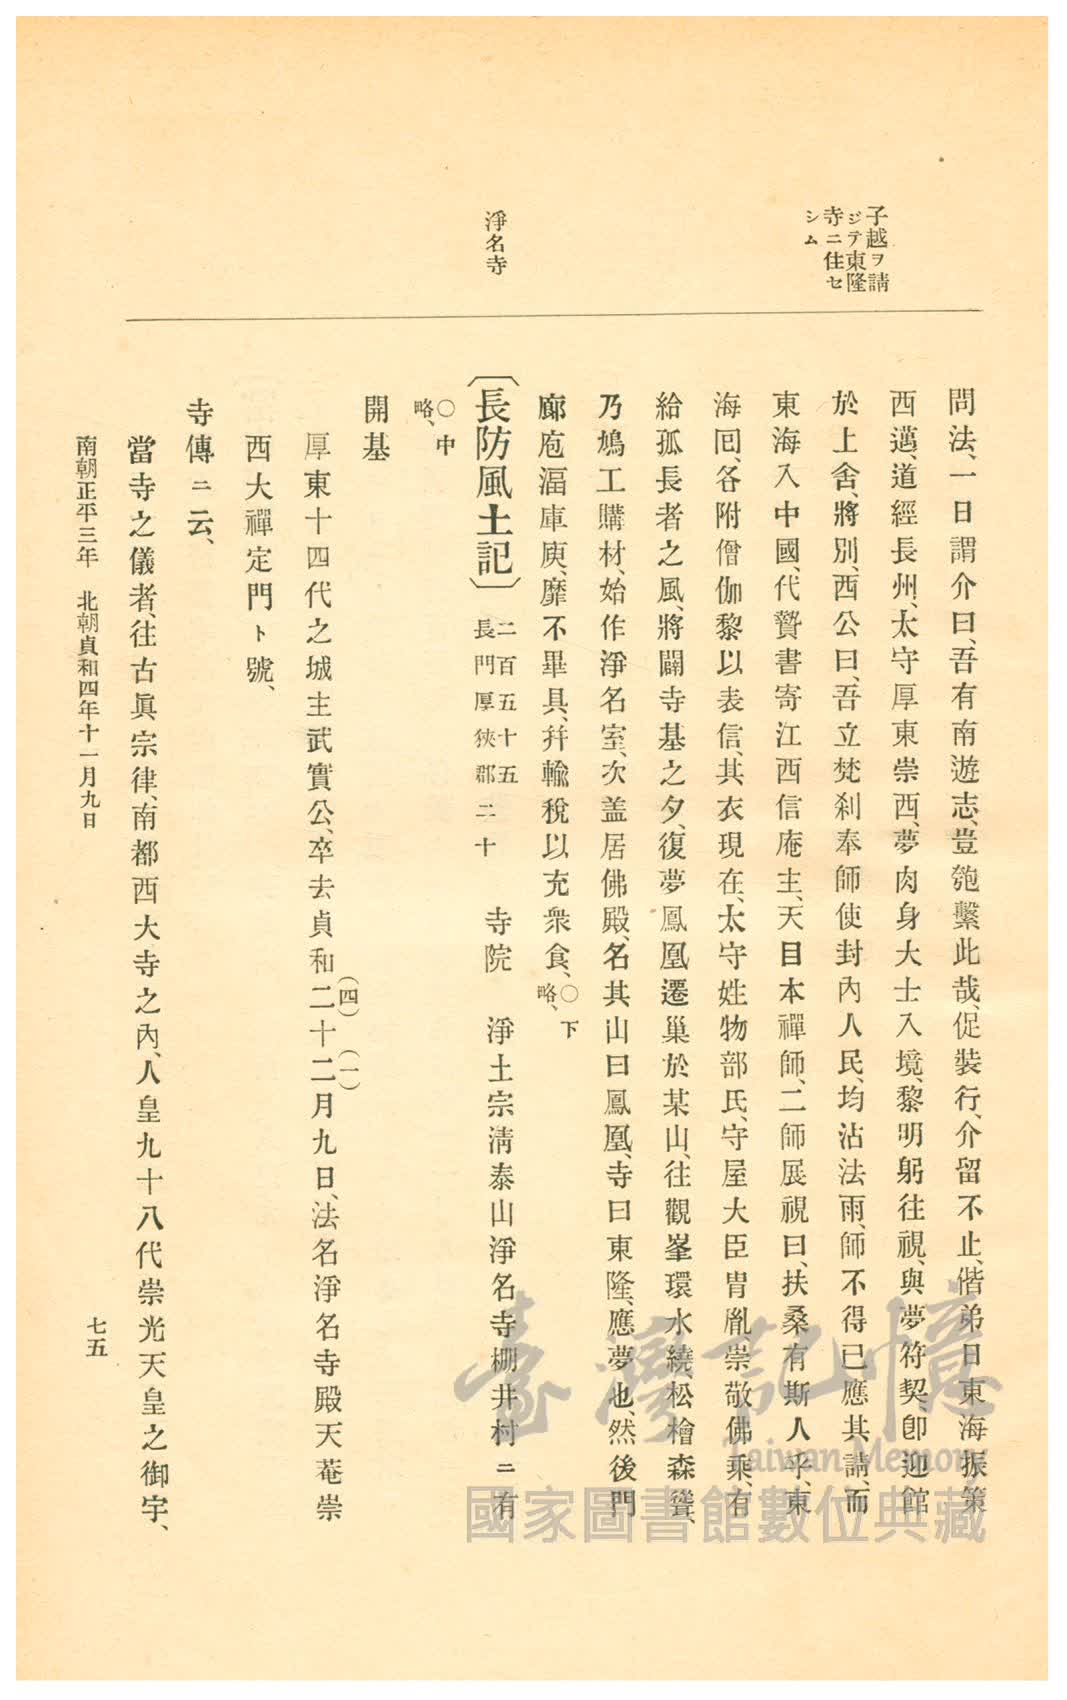 子越ヲ請
ジテ東隆
寺ニ住セ
シム
淨名寺
問法、一日謂介曰、吾有南遊志、豈匏繫此哉、促裝行、介留不止、偕弟日東海振策
西邁、道經長州、太守厚東崇西、夢肉身大士入境、黎明躬往視、與夢符契卽迎館
於上舍、將別、西公曰、吾立梵刹奉師使封內人民、均沾法雨、師不得已應其請、而
東海入中國、代贊書寄江西信庵主、天目本禪師、二師展視曰、扶桑有斯人乎、東
海囘、各附僧伽黎以表信、其衣現在、太守姓物部氏、守屋大臣冑胤、崇敬佛乘、有
給孤長者之風、將闢寺基之夕、復夢鳳凰遷巢於某山、往觀峯環水繞、松檜森聳、
乃鳩工購材、始作淨名室、次盖居佛殿、名其山曰鳳凰、寺曰東隆、應夢也、然後門
廊庖湢庫庾、靡不畢具、幷輸稅以充衆食、〇下略、
〔長防風土記〕二百五十五長門厚狹郡二十 寺院 淨土宗淸泰山淨名寺棚井村ニ有
〇中略、
開基
厚東十四代之城主武實公、卒去貞和二(四)十二(一)月九日、法名淨名寺殿天菴崇
西大禪定門ト號、
寺傳ニ云、
當寺之儀者、往古眞宗律、南都西大寺之內、人皇九十八代崇光天皇之御宇、
南朝正平三年 北朝貞和四年十一月九日
七五
臺灣記憶
Taiwan Memory
國家圖書館數位典藏